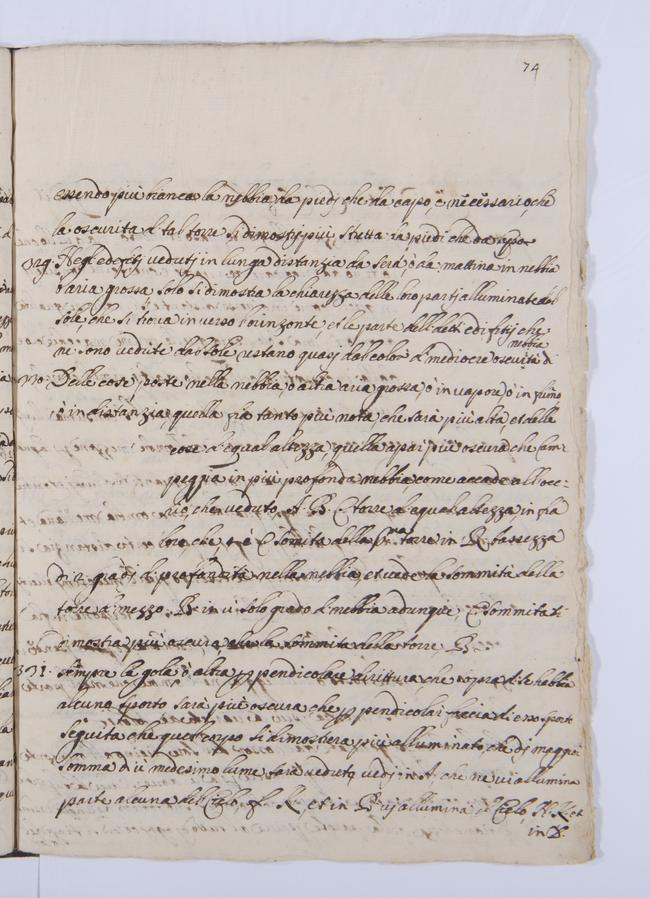 74
essendo più bianca la nebbia da piedj che da capo, è necessario, che
la oscurita d tal torre si dimostrj più stretta da piedi che da capo
329. Negl edefitj vedutj in lunga distanza da sera, ò da mattina in nebbia
ò aria grossa solo si dimostra la chiarezza delle loro partj alluminate dal
sole, che si trova in verso l'orizonte, et le parte dell dettj edifitj che
ne sono vedute dal sole restano quasj del color d mediocre oscurità di nebbia
330. Delle cose poste nella nebbia, ò altra aria grossa, ò in vapore, ò in fumo
ò in distanzia, quella fia tanto più nota, che sarà più alta, et delle
cose d equal altezza, quella apar più oscura che cam-
peggia in più profonda nebbia, come accade all'occ-
hio, che veduto A. B. C torre d equal altezza in fra
loro, che C sommita della p.ra torre in R. bassezza
di 2. gradj di profondità nella nebbia, et vede la sommità della
torre d mezzo B in ù solo grado d nebbia adunque C sommità si
dimostra più oscura, che la sommita della torre B.
331. Sempre la gola ò altra perpendicolare dirittura, che sopra di se habbia
alcuno sporto sarà più oscura che perpendicolar faccia di esso sporto
seguita che quel corpo si dimostera più alluminato, che dj maggior
somma d ù medesimo lume sarà veduto, vedj in A. che ne vi allumina
parte alcuna del Cielo, f. K et in B vj allumina il Cielo H. K. et
in D.